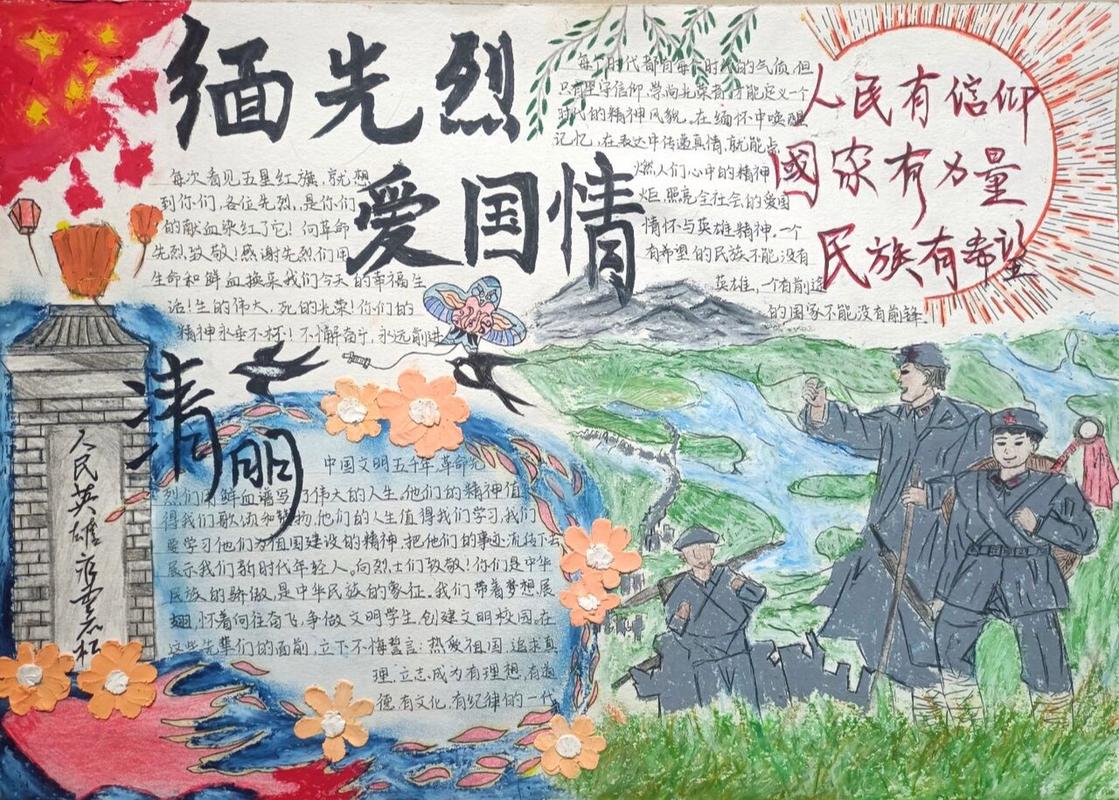 缅先烈
爱国情
每个时代都有每个时代的气质,但
只有坚守信仰、崇尚光荣,才能定义一个
时代的精神风貌。在缅怀中唤醒
记忆,在表达中传递真情,就能点
燃人们心中的精神
火炬,照亮全社会的爱国
情怀与英雄精神,一个
有希望的民族不能没有
英雄,一个有前途
的国家不能没有前锋。
人民有信仰
國家有力量
民族有希望
每次看见五星红旗,就想
到你们,各位先烈,是你们
的献血染红了它!向革命
先烈致敬!感谢先烈们用
生命和鲜血换来我们今天的幸福生
活!生的伟大,死的光荣!你们的
精神永垂不朽!不懈奋斗,永远前进
清明
人民英雄永垂不朽
中国文明五千年,革命先
烈们用鲜血谱写了伟大的人生,他们的精神值
得我们歌颂和赞扬,他们的人生值得我们学习,我们
要学习他们为祖国建设的精神,把他们的事迹流传下去
展示我们新时代年轻人,向烈士们致敬!你们是中华
民族的骄傲,是中华民族的象征。我们带着梦想展
翅,怀着向往奋飞,争做文明学生,创建文明校园,在
这些先辈们的面前,立下不悔誓言:热爱祖国,追求真
理,立志成为有理想,有道
德,有文化,有纪律的一代